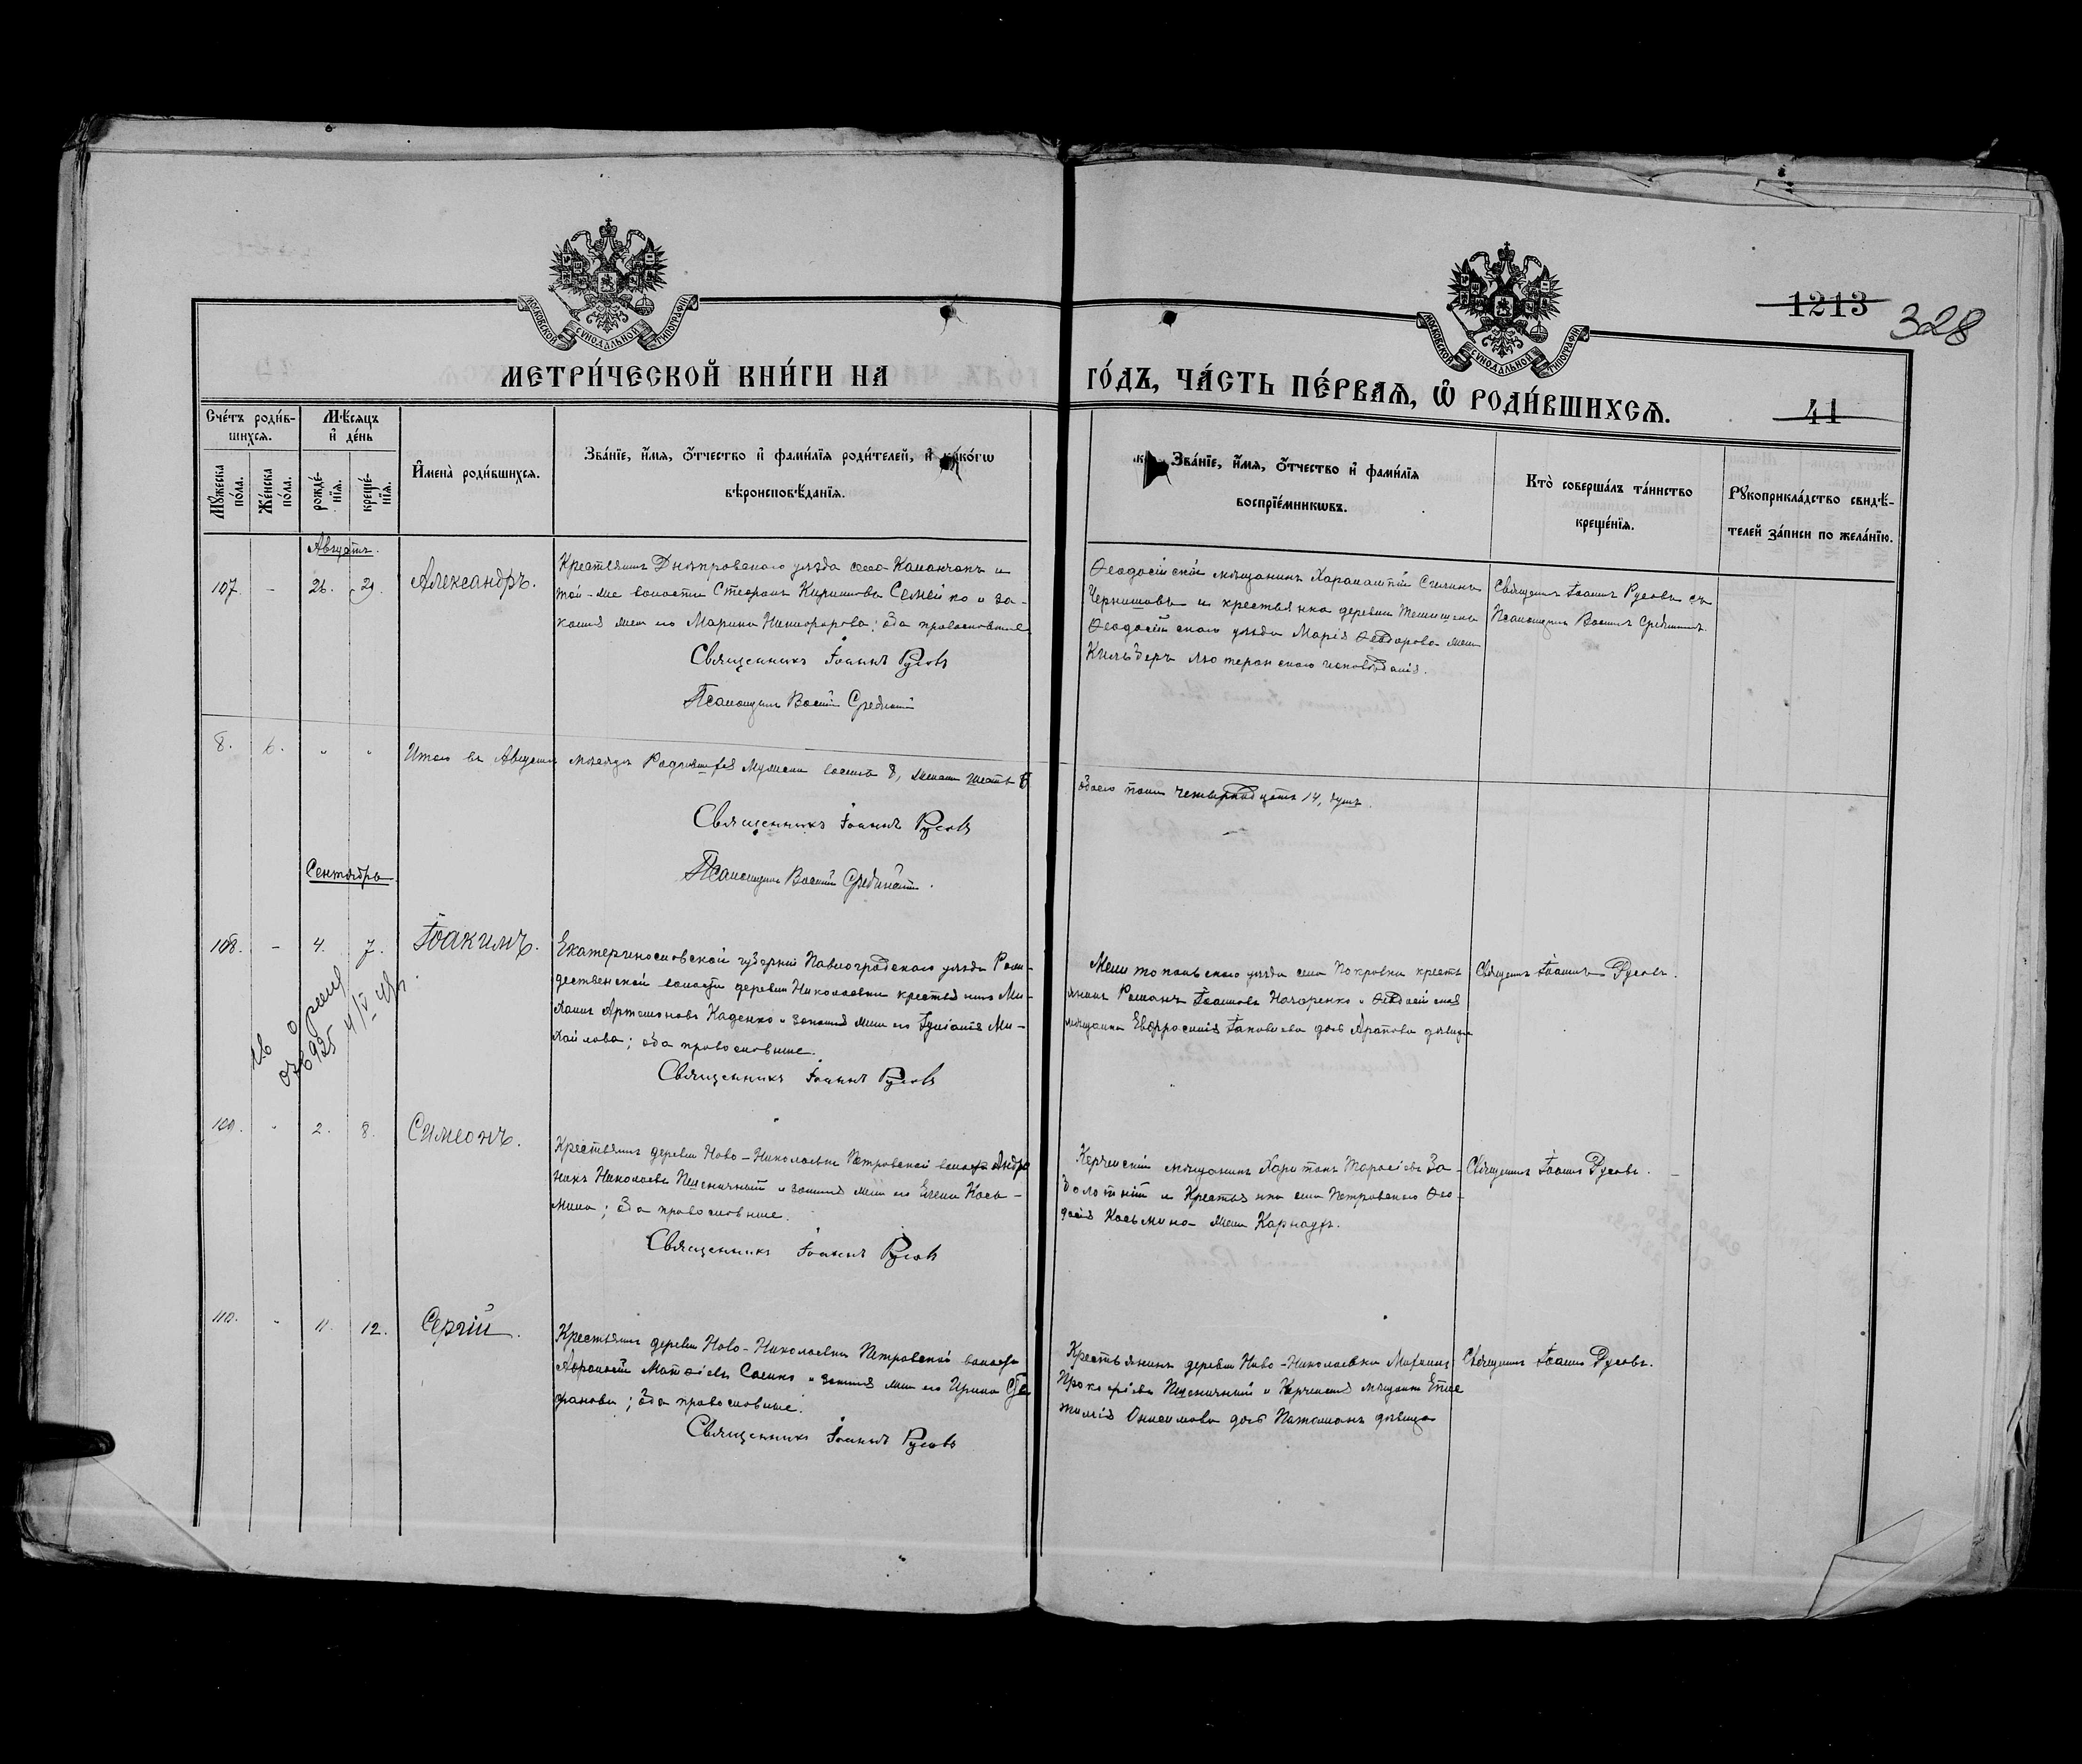 МОСКОВСКОЙ СУНОДАЛЬНОЙ ТИПОГРАФІИ
МОСКОВСКОЙ СУНОДАЛЬНОЙ ТИПОГРАФІИ
1213
328
МЕТРИ́ЧЕСКОЙ КНИ́ГИ НА ГО́ДЪ, ЧА́СТЬ ПЕ́РВАѦ, Ѡ҆ РОДИ́ВШИХСѦ.
41
Сче́тъ роди́в-
шихсѧ.
Мꙋ́жеска по́ла.
Же́нска по́ла.
Мѣ́сѧцъ
и҆ де́нь
рожде́-нїѧ.
креще́-нїѧ.
И҆мена̀ роди́вшихсѧ.
Зва́нїе, и҆́мѧ, ѻ҆́тчество и҆ фами́лїѧ роди́телей, и҆ како́гѡ
вѣроисповѣ́данїѧ.
Зва́нїе, и҆́мѧ, ѻ҆́тчество и҆ фами́лїѧ
воспрїе́мникѡвъ.
Кто̀ соверша́лъ та́инство
креще́нїѧ.
Рꙋкоприкла́дство свидѣ́-
телей за́писи по жела́нїю.
Августъ.
107. - 26. 29. Александръ.
Крестьянинъ Днѣпровскаго уѣзда села Каланчакъ и
той-же волости Стефанъ Кирилловъ Семейко и за-
конная жена его Марина Никифорова; оба православные
Священникъ Іоаннъ Русовъ
Псаломщикъ Василій Срединскій
Ѳеодосійскій мѣщанинъ Харалампій
Чернышовъ и крестьянка деревни
Ѳеодосійскаго уѣзда Марія Ѳеодорова жена
Кильдеръ лютеранскаго исповѣданія.
Священникъ Іоаннъ Русовъ съ
Псаломщикомъ Василіемъ Срединскимъ
8. 6. " " Итого въ Августѣ мѣсяцѣ Родившихся мужеска восемь 8, женска шесть 6
обоего пола четырнадцать 14, душъ.
Священникъ Іоаннъ Русовъ
Псаломщикъ Василій Срединскій.
Сентябрь
108. - 4. 7. Іоакимъ.
Екатеринославской губерніи Павлоградскаго уѣзда Рож-
дественской волости деревни Николаевки крестьянинъ Ми-
хаилъ Артамоновъ Каденко и законная жена его Іуліанія Ми-
хайлова; оба православные.
Священникъ Іоаннъ Русовъ
Мелитопольскаго уѣзда села Покровки кресть
янинъ Романъ Іоанновъ Назаренко и Ѳеодосійская
мѣщанка Евфросинія Іаковлева дочь Арапова дѣвица
Священникъ Іоаннъ Русовъ.
109. " 2. 8. Симеонъ.
Крестьянинъ деревни Ново-Николаевки Петровской волости Андро
никъ Николаевъ Пшеничный и законная жена его Елена Кось-
мина; оба православные.
Священникъ Іоаннъ Русовъ
Керченскій мѣщанинъ Харитонъ Тарасіевъ За-
болотній и Крестьянка села Петровскаго Ѳео-
досія Косьмина жена Карнаухъ.
Священникъ Іоаннъ Русовъ.
110. " 11. 12. Сергій.
Крестьянинъ деревни Ново-Николаевки Петровской волости
Афанасій Матѳіевъ Саенко и законная жена его Ирина Сте
фанова; оба православные.
Священникъ Іоаннъ Русовъ
Крестьянинъ деревни Ново-Николаевки Михаилъ
Прокофіевъ Пшеничный и Керченская мѣщанка
Онисимова дочь дѣвица
Священникъ Іоаннъ Русовъ.